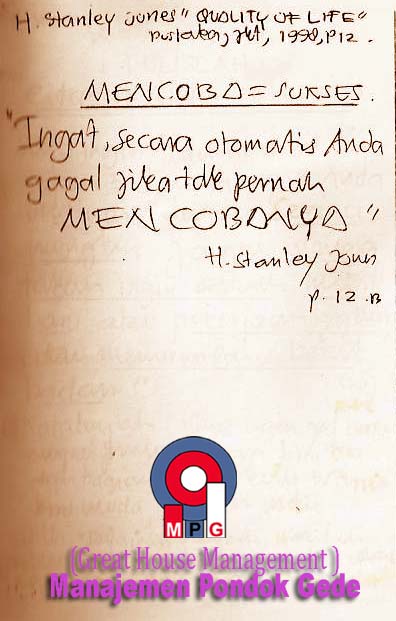 H. Stanley Jones "QUALITY OF LIFE"
pustaka, jkt, 1998, p12.
MENCOBA = SUKSES.
"Ingat, secara otomatis Anda
gagal jika tdk pernah
MENCOBANYA"
H. Stanley Jones
p. 12.B
MPG
(Great House Management )
Manajemen Pondok Gede